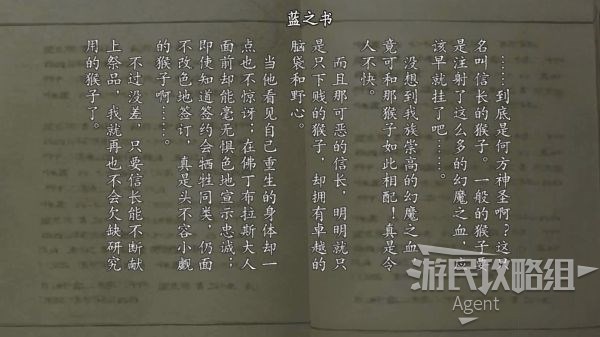 蓝之书
……到底是何方神圣啊？这只
名叫信长的猴子。一般的猴子要
是注射了这么多的幻魔之血，应
该早就挂了吧……。
没想到我族崇高的幻魔之血，
竟可和那猴子如此相配！真是令
人不快。
而且那可恶的信长，明明就只
是只下贱的猴子，却拥有卓越的
脑袋和野心。
当他看见自己重生的身体却一
点也不惊讶；在佛丁布拉斯大人
面前却能毫无惧色地宣示忠诚；
即使知道签约会牺牲同类，仍面
不改色地签订，真是头不容小觑
的猴子啊……。
不过没差，只要信长能不断献
上祭品，我就再也不会欠缺研究
用的猴子了。
游民攻略组
Agent